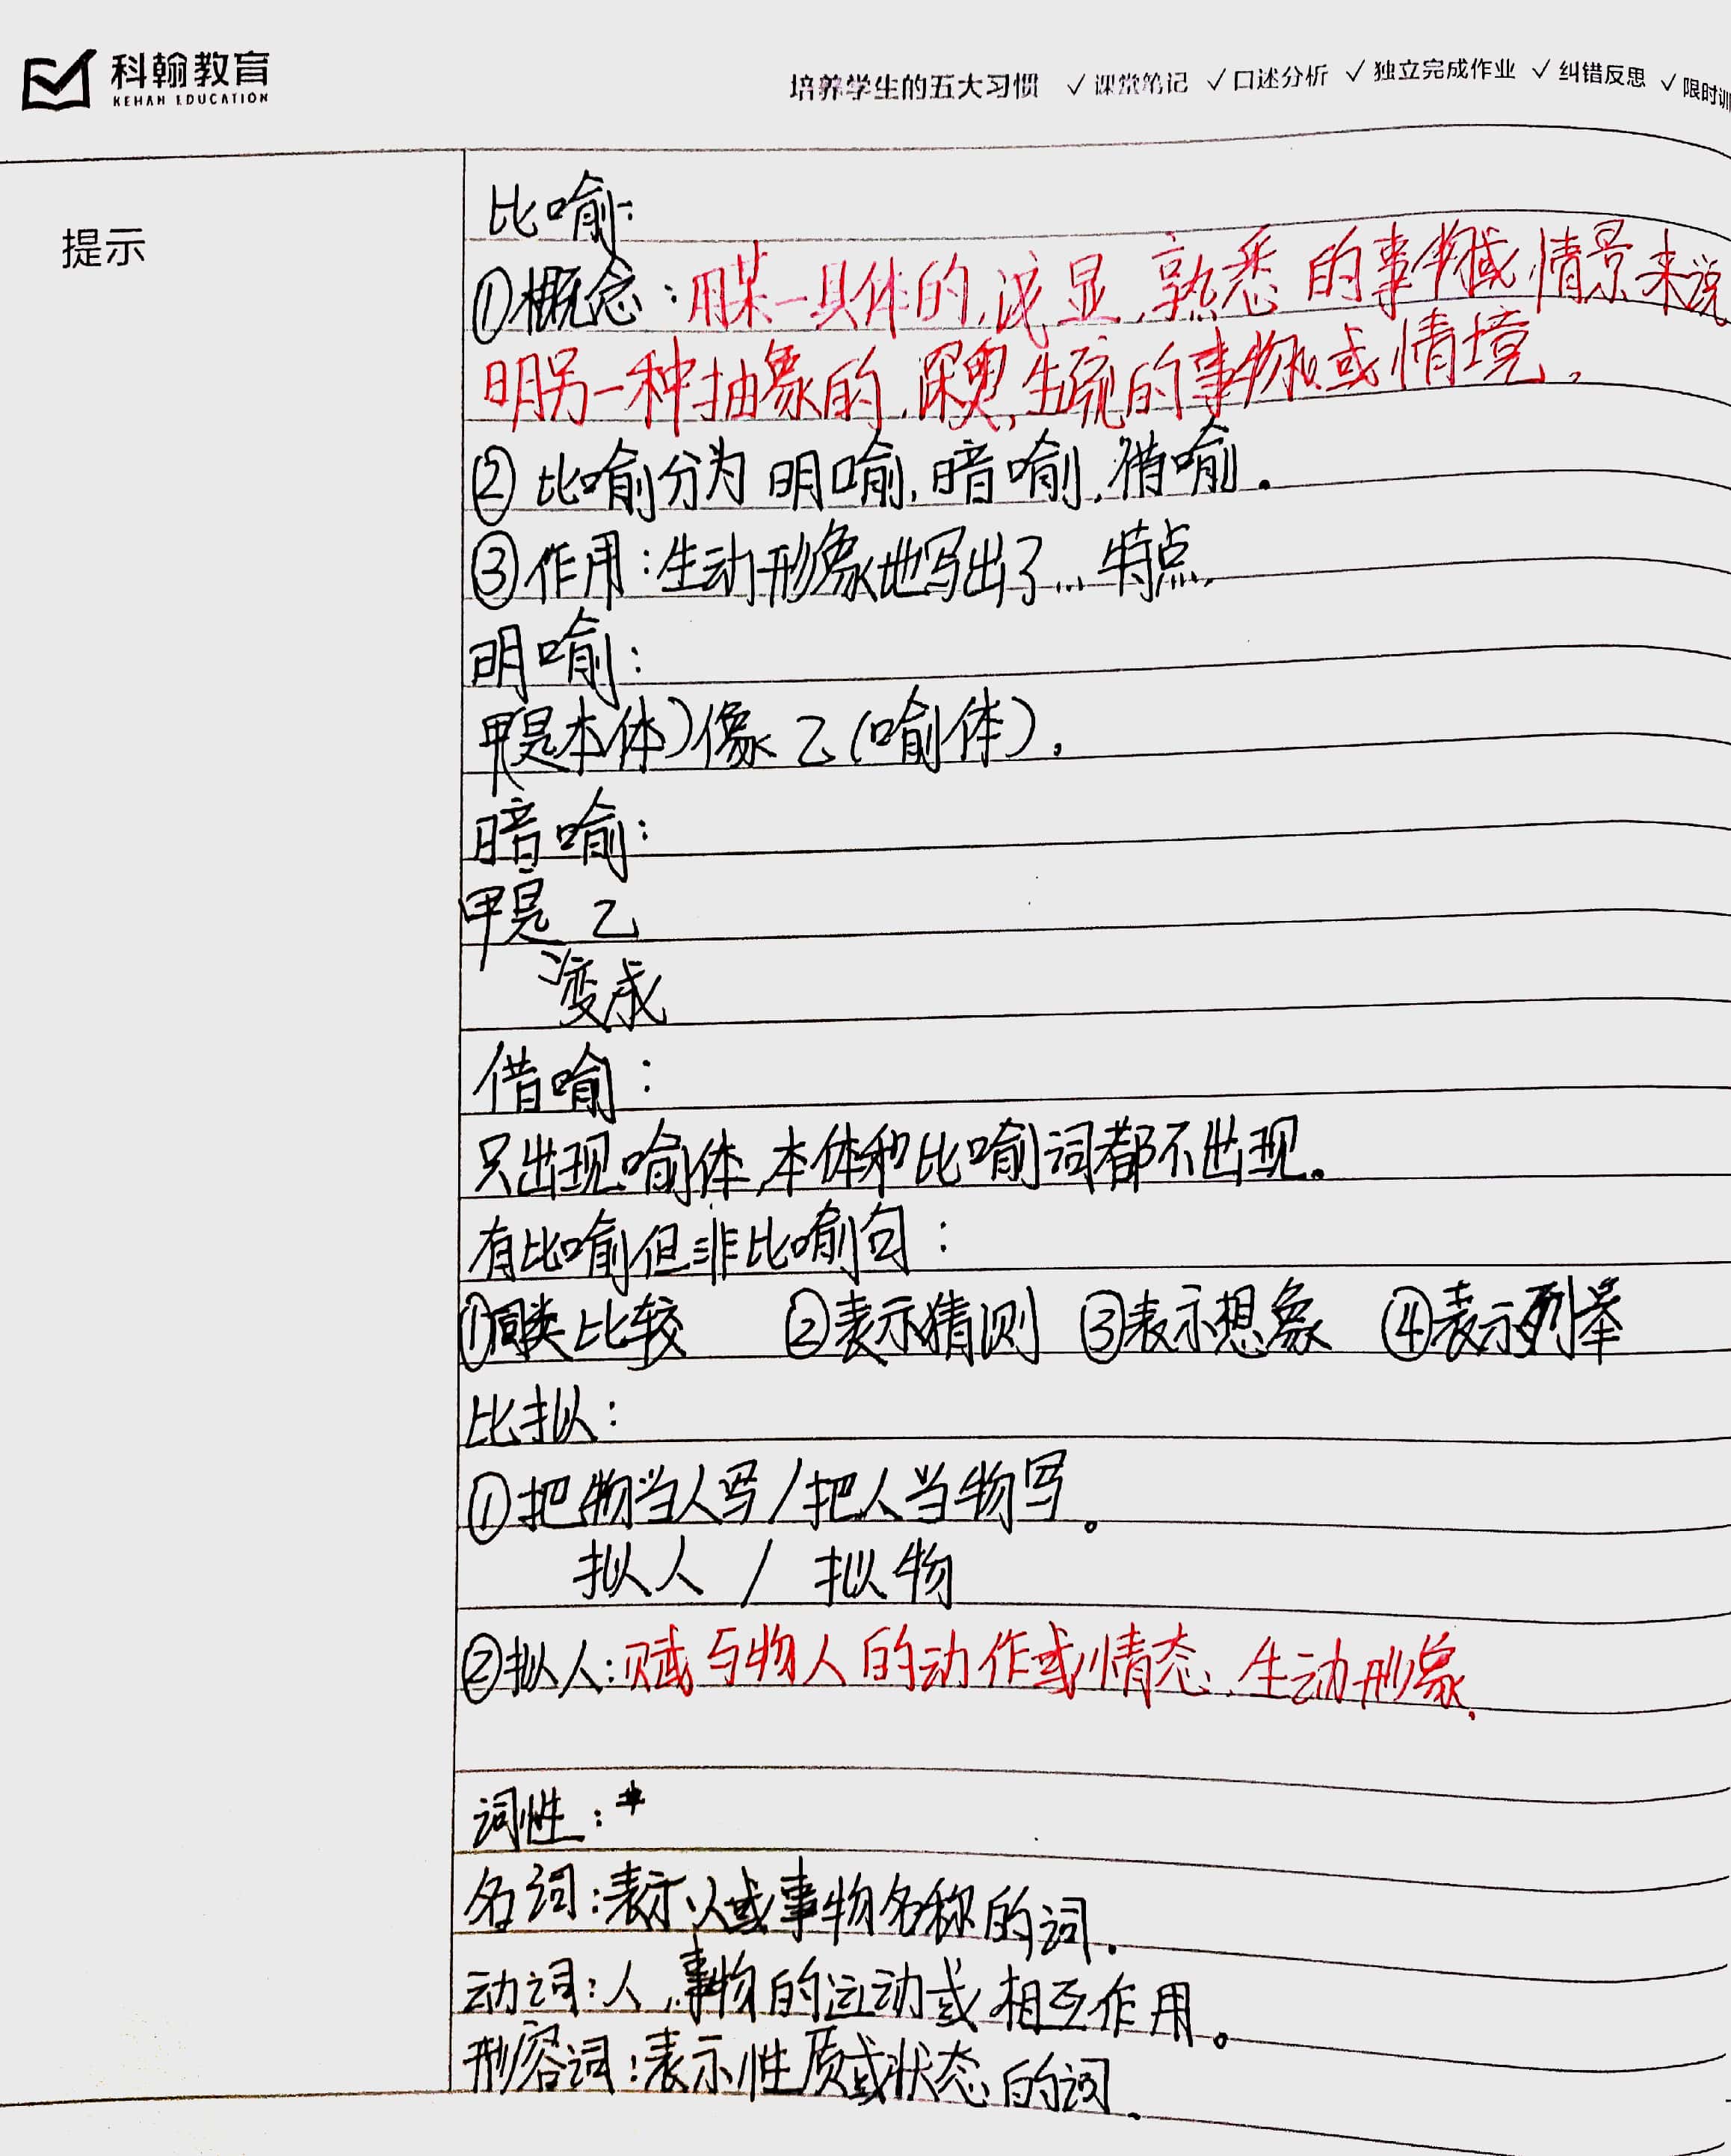 科翰教育
KEHAN EDUCATION
培养学生的五大习惯 ✓课堂笔记 ✓口述分析 ✓独立完成作业 ✓纠错反思 ✓限时训
提示
比喻:
①概念:用某一具体的,浅显,熟悉的事物或情景来说
明另一种抽象的,深奥,生疏的事物或情境。
②比喻分为明喻,暗喻,借喻。
③作用:生动形象地写出了...特点.
明喻:
甲是(本体)像乙(喻体)。
暗喻:
甲是 乙
变成
借喻:
只出现喻体,本体和比喻词都不出现。
有比喻但非比喻句:
①同类比较 ②表示猜测 ③表示想象 ④表示列举
比拟:
①把物当人写/把人当物写。
拟人/拟物
②拟人:赋与物人的动作或情态,生动形象.
词性:*
名词:表示人或事物名称的词.
动词:人,事物的运动或相互作用。
形容词:表示性质或状态的词.